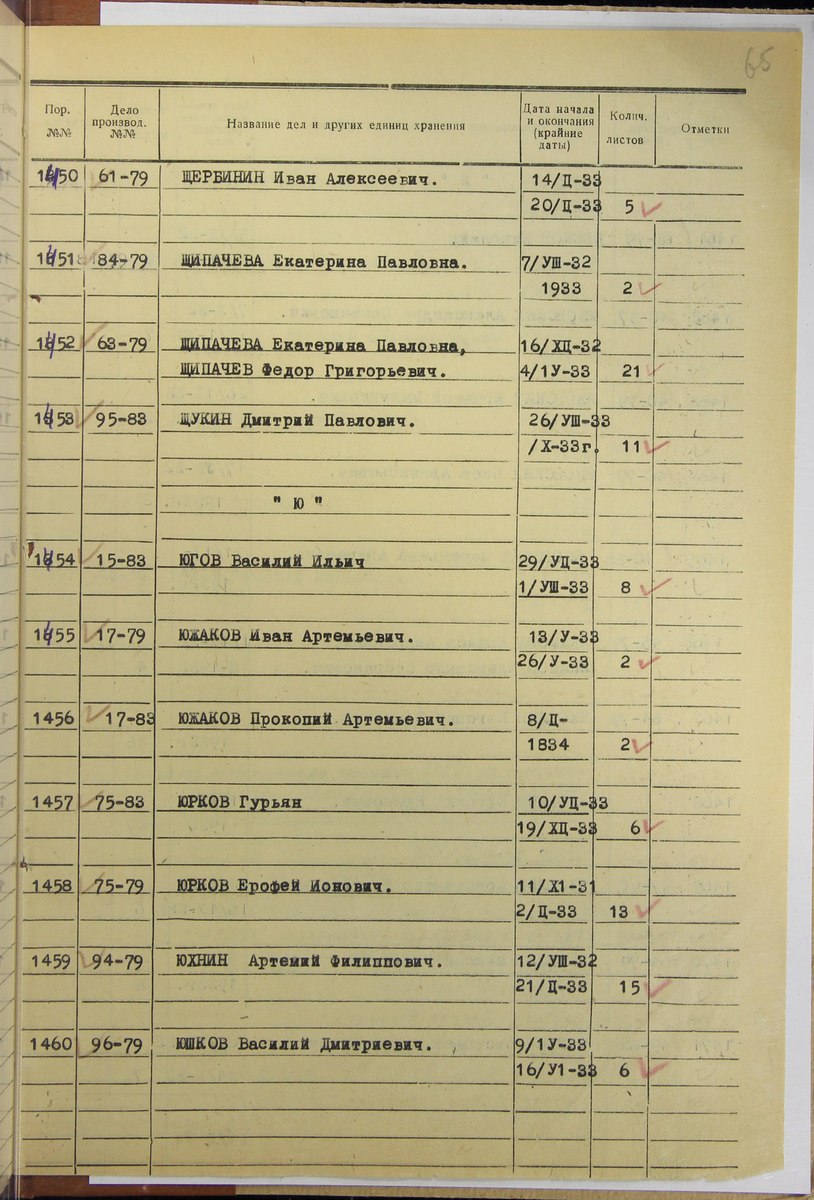 65
Пор. №№ Дело производ. №№ Название дел и других единиц хранения Дата начала и окончания (крайние даты) Колич. листов Отметки
1450 61-79 ЩЕРБИНИН Иван Алексеевич. 14/Ц-33
20/Ц-33 5
1451 84-79 ЩИПАЧЕВА Екатерина Павловна. 7/УШ-32
1933 2
1452 63-79 ЩИПАЧЕВА Екатерина Павловна, 16/ХЦ-32
ЩИПАЧЕВ Федор Григорьевич. 4/1У-33 21
1453 95-83 ЩУКИН Дмитрий Павлович. 26/УШ-33
/Х-33г. 11
" Ю "
1454 15-83 ЮГОВ Василий Ильич 29/УЦ-33
1/УШ-33 8
1455 17-79 ЮЖАКОВ Иван Артемьевич. 13/У-33
26/У-33 2
1456 17-83 ЮЖАКОВ Прокопий Артемьевич. 8/Ц-
1834 2
1457 75-83 ЮРКОВ Гурьян 10/УЦ-33
19/ХЦ-33 6
1458 75-79 ЮРКОВ Ерофей Ионович. 11/Х1-31
2/Ц-33 13
1459 94-79 ЮХНИН Артемий Филиппович. 12/УШ-32
21/Ц-33 15
1460 96-79 ЮШКОВ Василий Дмитриевич. 9/1У-33
16/У1-33 6